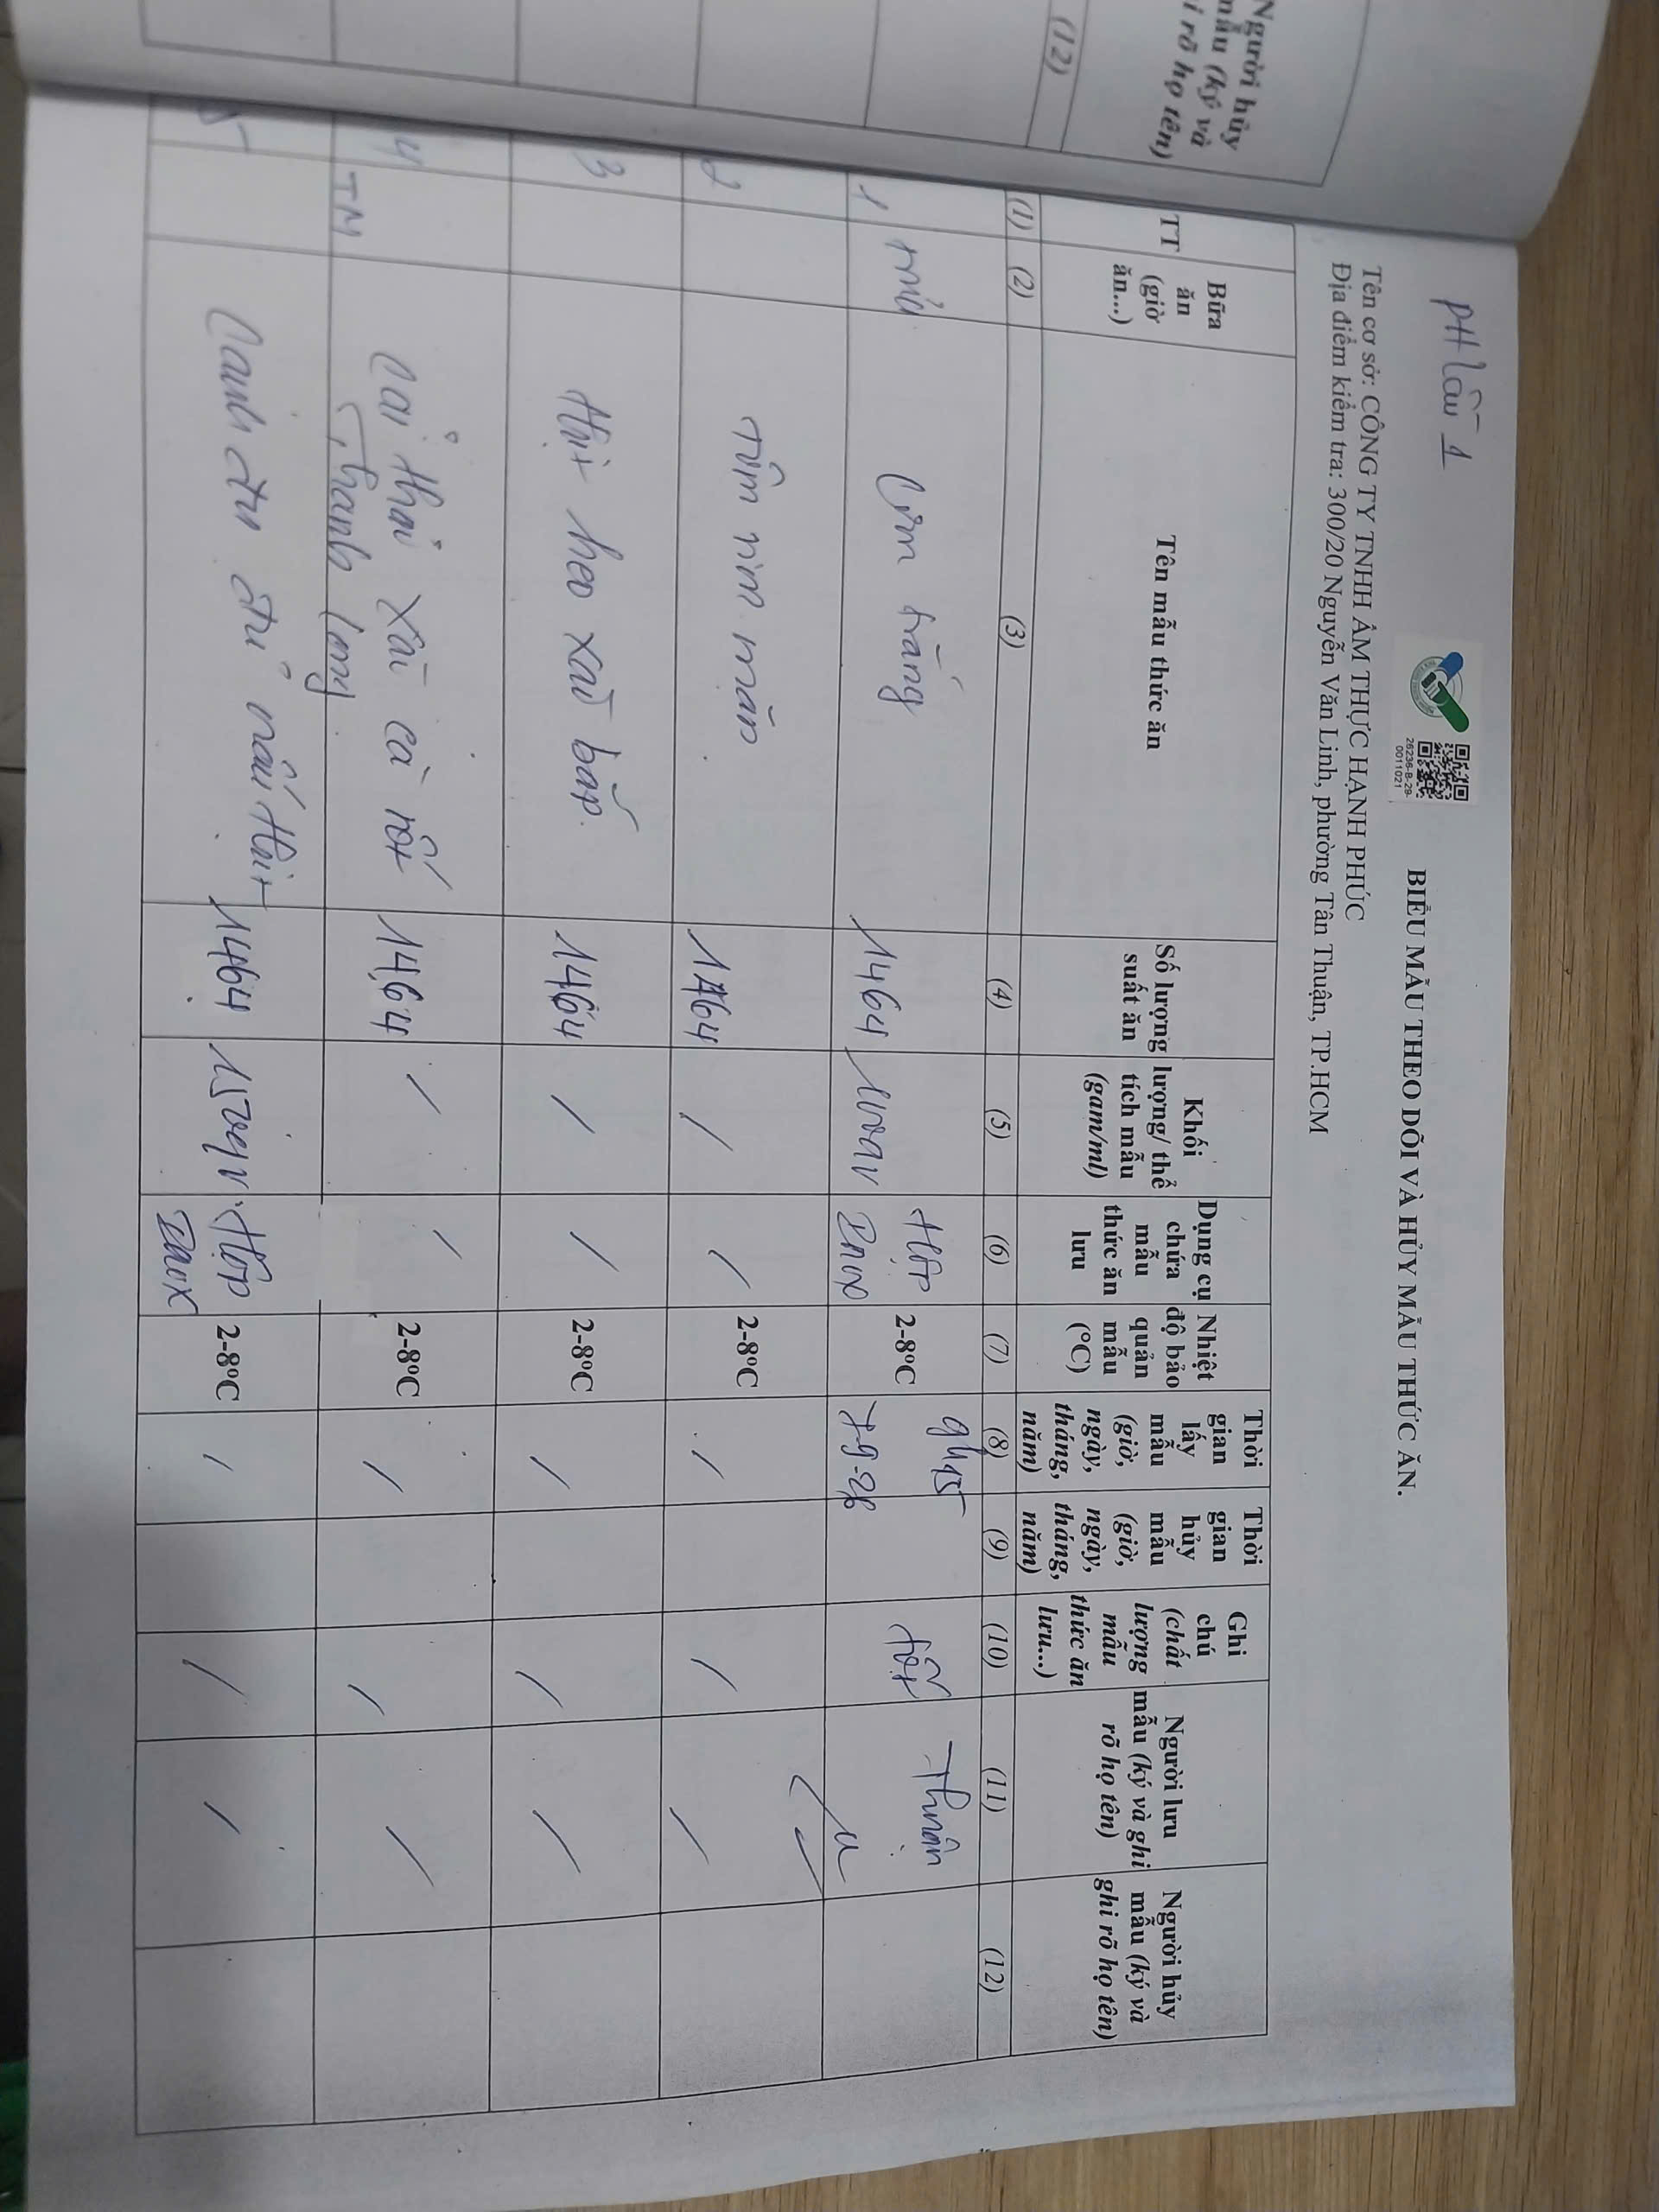 Người hủy
mẫu (ký và
i rõ họ tên)
(12)
PH lần 1
26236-B-29-
0011021
BIỂU MẪU THEO DÕI VÀ HỦY MẪU THỨC ĂN.
Tên cơ sở: CÔNG TY TNHH ẨM THỰC HẠNH PHÚC
Địa điểm kiểm tra: 300/20 Nguyễn Văn Linh, phường Tân Thuận, TP.HCM
TT
Bữa
ăn
(giờ
ăn...)
Tên mẫu thức ăn
Số lượng
suất ăn
Khối
lượng/ thể
tích mẫu
(gam/ml)
Dụng cụ
chứa
mẫu
thức ăn
lưu
Nhiệt
độ bảo
quản
mẫu
(°C)
Thời
gian
lấy
mẫu
(giờ,
ngày,
tháng,
năm)
Thời
gian
hủy
mẫu
(giờ,
ngày,
tháng,
năm)
Ghi
chú
(chất
lượng
mẫu
thức ăn
lưu...)
Người lưu
mẫu (ký và ghi
rõ họ tên)
Người hủy
mẫu (ký và
ghi rõ họ tên)
(1) (2) (3) (4) (5) (6) (7) (8) (9) (10) (11) (12)
1 Cơm trắng 1464 Hộp Inox 2-8°C 9h45 tốt Thuận
2 Tôm rim mặn 1464 / / 2-8°C / / /
3 Thịt heo xào bắp. 1464 / / 2-8°C / / /
4 TM Cải thảo xào cà rốt 1464 / / 2-8°C / / /
Thanh long
5 Canh đu đủ nấu thịt 1464 Hộp Inox 2-8°C / / /